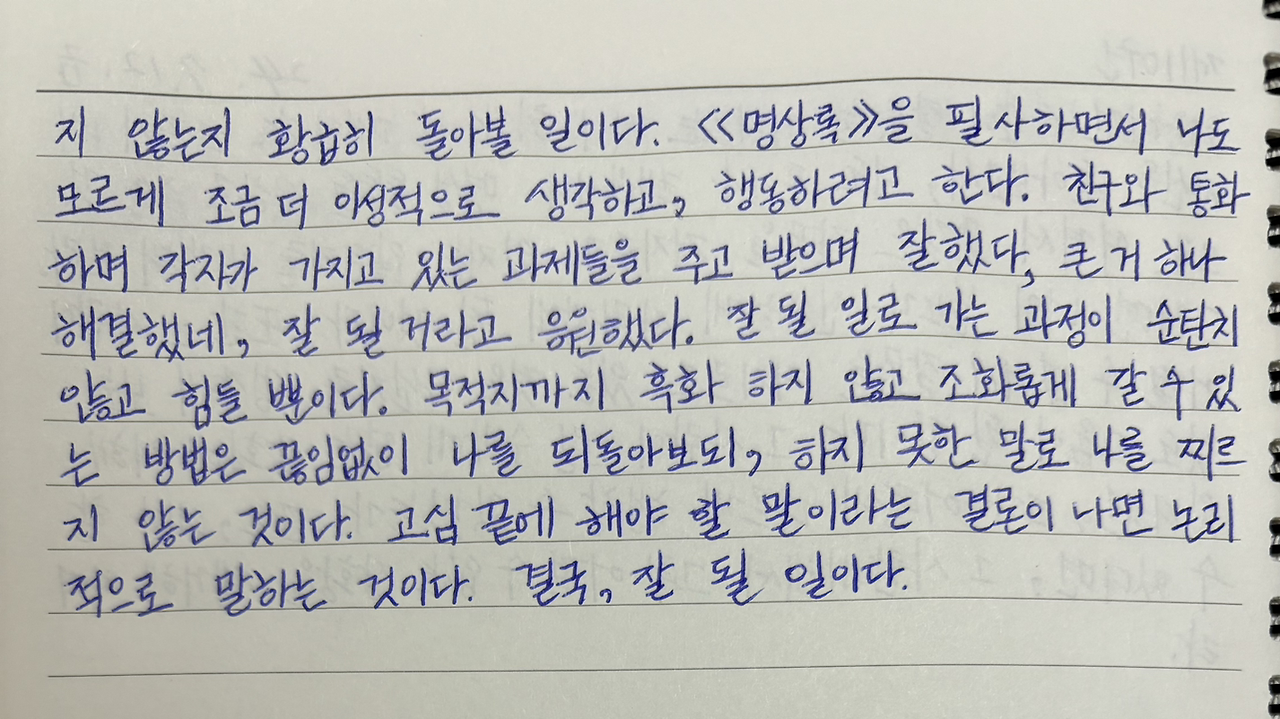 지 않는지 황급히 돌아볼 일이다. 《명상록》을 필사하면서 나도
모르게 조금 더 이성적으로 생각하고, 행동하려고 한다. 친구와 통화
하며 각자가 가지고 있는 과제들을 주고 받으며 잘했다, 큰 거 하나
해결했네, 잘 될 거라고 응원했다. 잘 될 일로 가는 과정이 순탄치
않고 힘들 뿐이다. 목적지까지 흑화 하지 않고 조화롭게 갈 수 있
는 방법은 끊임없이 나를 되돌아보되, 하지 못한 말로 나를 찌르
지 않는 것이다. 고심 끝에 해야 할 말이라는 결론이 나면 논리
적으로 말하는 것이다. 결국, 잘 될 일이다.